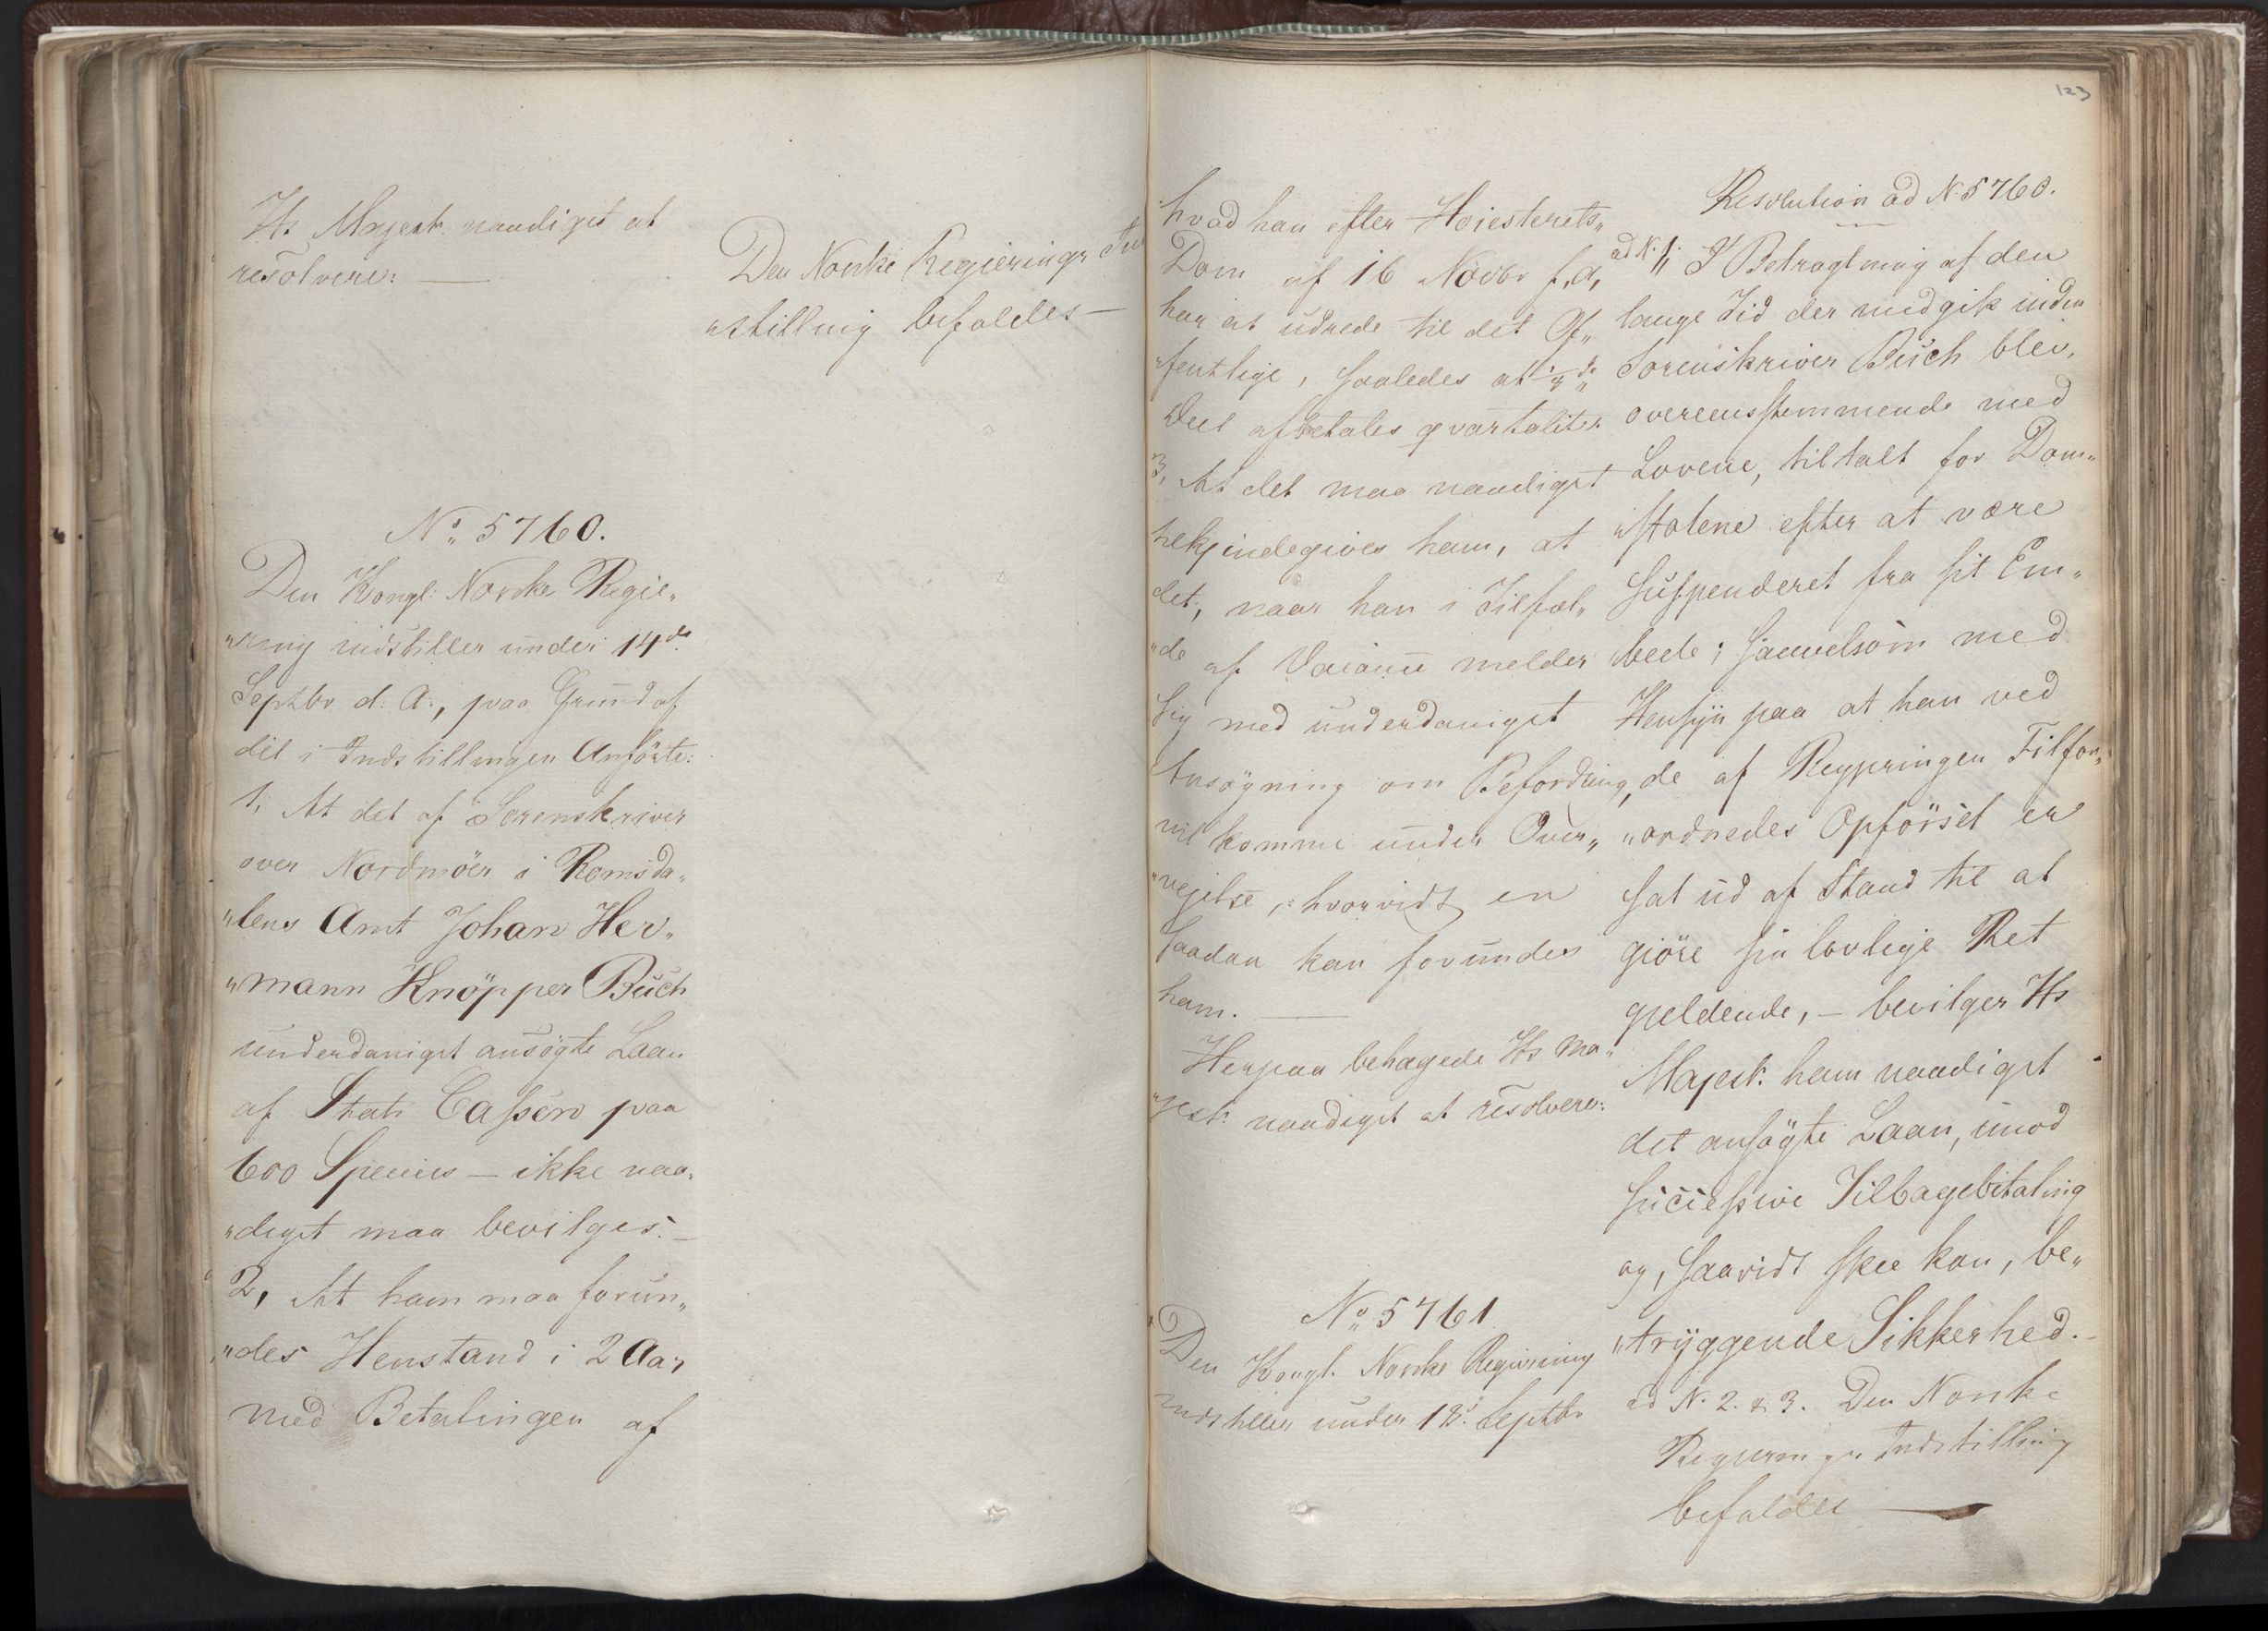 Hs Majest. naadigst at
resolvere: —
Den Norske Regierings In
„stilling befales —
No. 5760.
Den Kongl: Norske Regie„
„ring indstiller under 14de
Septbr d: A:, paa Grund af
det i Indstillingen Anförte:
1, At det af Sorenskriver
over Nordmöer i Romsda„
„lens Amt Johan Her„
„mann Knöpper Büch
underdanigst ansögte Laan
af Stats Cassen paa
600 Species — ikke naa„
„digst maa bevilges. —
2, At ham maa forun„
„des Henstand i 2 Aar
med Betalingen af
123
hvad han efter Hoiesterets„
Dom af 16 Novbr f. A,
har at udrede til det Of„
„fentlige, saaledes at 1/8de
Deel afbetales qvartaliter.
3, At det maa naadigst
tilkjendegives ham, at
det, naar han i Tilfæl„
„de af Vacance melder
sig med underdanigst
Ansögning om Befordring,
vil komme under Over„
„vejelse, hvorvidt en
saadan kan forundes
ham. —
Herpaa behagede Hs Ma„
„jest: naadigst at resolvere:
No. 5761
Den Kongl. Norske Regiering
indstiller under 18. Septbr
Resolution ad N. 5760.
ad N. 1. I Betragtning af den
lange Tid der medgik inden
Sorenskriver Büch blev,
overeensstemmende med
Lovene, tiltalt for Dom„
„stolene efter at være
suspenderet fra sit Em„
bede; saavelsom med
Hensyn paa at han ved
de af Regieringen Tilfor„
„ordnedes Opförsel er
sat ud af Stand til at
giöre sin lovlige Ret
gjeldende, — bevilger Hs
Majest. ham naadigst
det ansögte Laan, imod
successive Tilbagebetaling
og, saavidt skee kan, be„
„tryggende Sikkerhed. —
ad N. 2. & 3. Den Norske
Regierings Indstilling
befaldes —